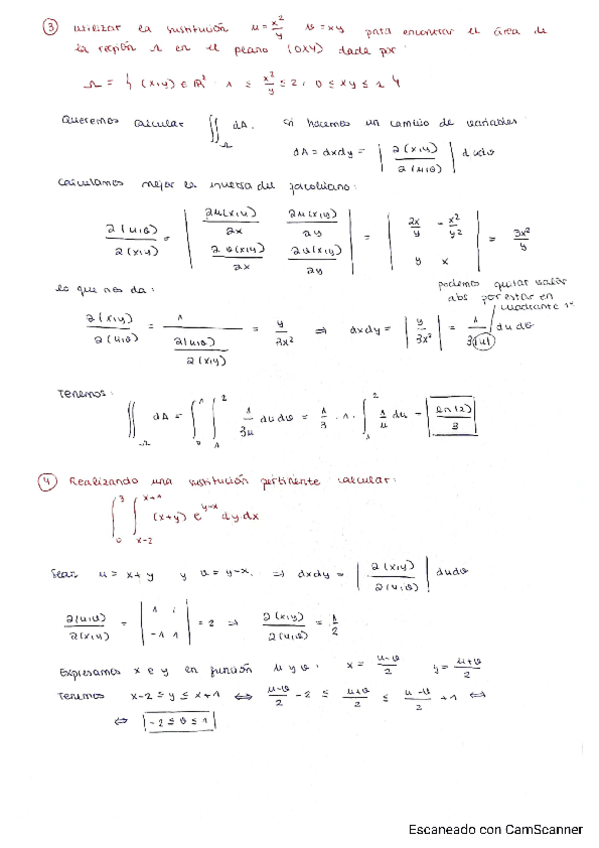 ③ Utilizar la sustitución u = x²/y v = xy para encontrar el área de
la región Ω en el plano (OXY) dada por
Ω = { (x,y) ∈ ℝ² : 1 ≤ x²/y ≤ 2, 0 ≤ xy ≤ 1 }
Queremos calcular ∬_Ω dA. Si hacemos un cambio de variables
dA = dxdy = | ∂(x,y) / ∂(u,v) | dudv
Calculamos mejor la inversa del jacobiano:
∂(u,v)/∂(x,y) = | ∂u(x,y)/∂x ∂u(x,y)/∂y ; ∂v(x,y)/∂x ∂v(x,y)/∂y | = | 2x/y -x²/y² ; y x | = 3x²/y
lo que nos da:
podemos quitar valor
abs por estar en
cuadrante 1º
∂(x,y)/∂(u,v) = 1 / (∂(u,v)/∂(x,y)) = y/3x² ⇒ dxdy = | y/3x² | = 1/3|u| du dv
Tenemos:
∬_Ω dA = ∫₀¹ ∫₁² 1/3u du dv = 1/3 · 1 · ∫₁² 1/u du = ln(2)/3
④ Realizando una sustitución pertinente calcular:
∫₀³ ∫_{x-2}^{x+1} (x+y) e^{y-x} dy dx
Sean u = x+y y v = y-x. ⇒ dxdy = | ∂(x,y)/∂(u,v) | dudv
∂(u,v)/∂(x,y) = | 1 1 ; -1 1 | = 2 ⇒ ∂(x,y)/∂(u,v) = 1/2
Expresamos x e y en función u y v: x = u-v/2 y = u+v/2
Tenemos x-2 ≤ y ≤ x+1 ⇔ u-v/2 - 2 ≤ u+v/2 ≤ u-v/2 + 1 ⇔
⇔ -2 ≤ v ≤ 1
Escaneado con CamScanner